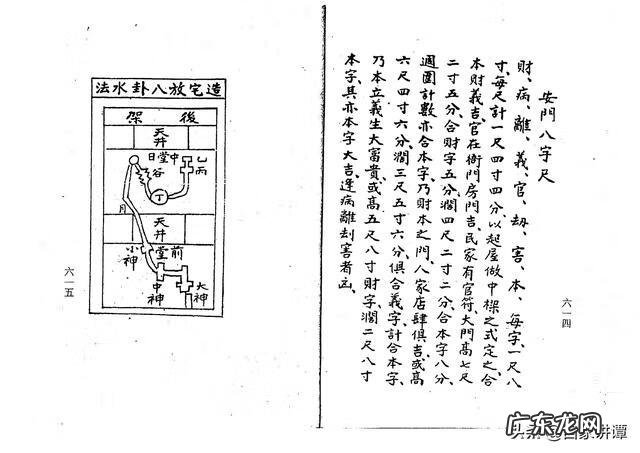 安門八字尺
財、病、離、義、官、劫、害、本、每字一尺八
寸、每尺計一尺四寸四分、以起屋做中樑之式定之、合
本財義吉、官在衙門房門吉、民家有官符、大門高七尺
二寸五分、合財字五分、濶四尺二寸二分、合本字八分、
週圍計數亦合本字、乃財本之門、人家店肆俱吉、或高
六尺四寸六分、濶三尺五寸六分、俱合義字、計合本字、
乃本立義生大富貴、或高五尺八寸財字、濶二尺八寸
本字、其亦本字大吉、逢病離刦害者凶、
六一四
造宅放八卦水法
後架
天井
中堂日
乙丙
谷
丁
月
天井
前堂
小神
中神
大神
六一五
广东龙网